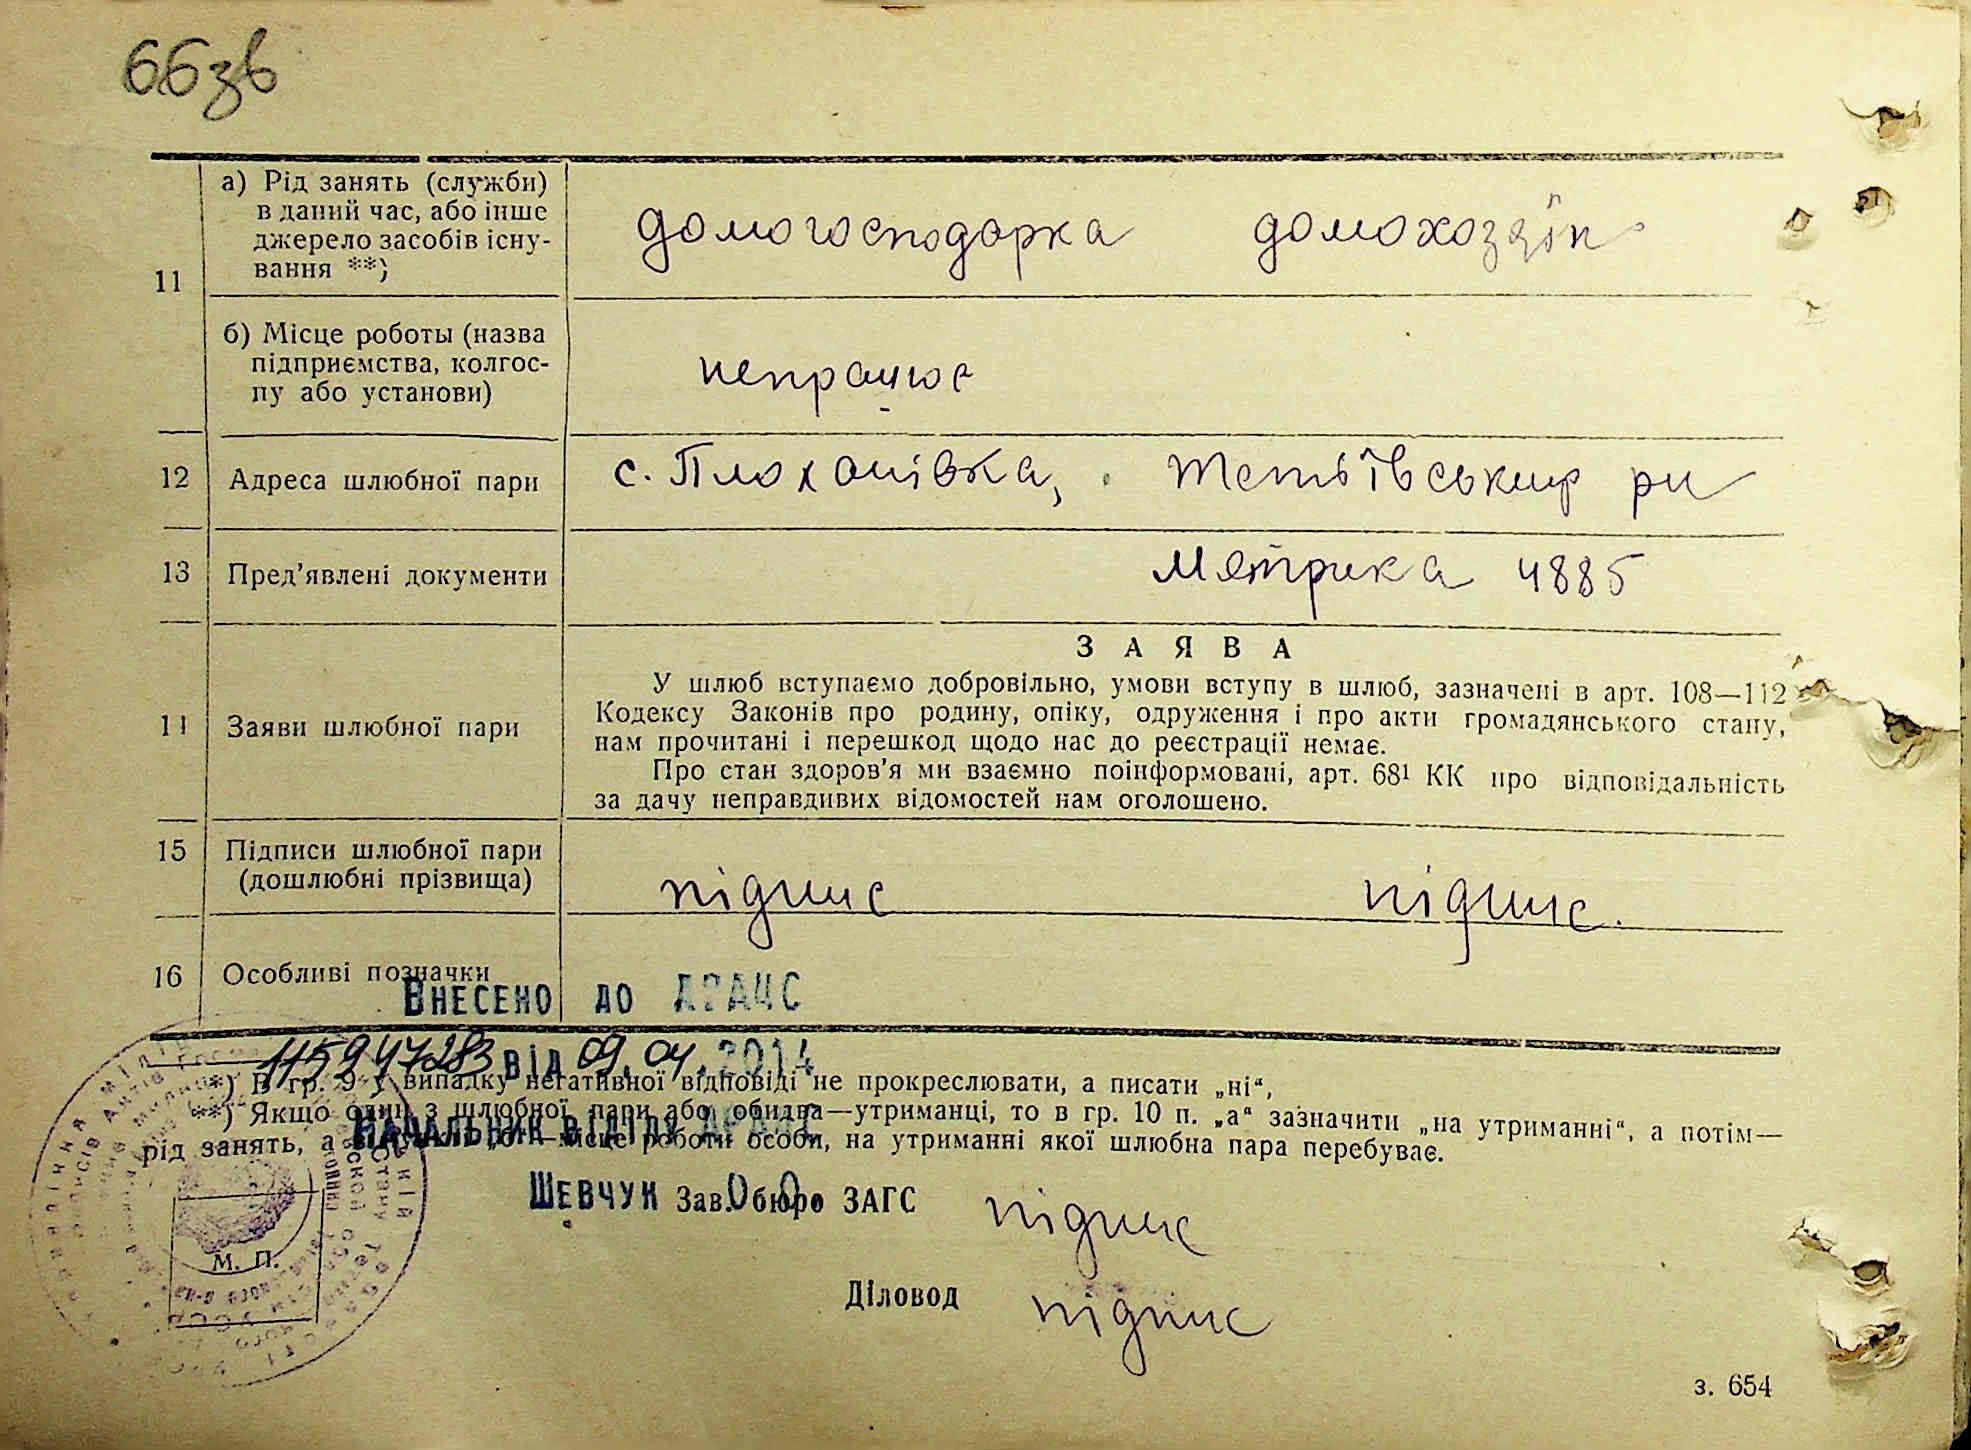 66зв
11
а) Рід занять (служби)
в даний час, або інше
джерело засобів існу-
вання **)
домогосподарка домохозяїн
б) Місце роботы (назва
підприємства, колгос-
пу або установи)
непрацює
12 Адреса шлюбної пари с. Плоханівка, Тетіївський рн
13 Пред'явлені документи Метрика 4885
14 Заяви шлюбної пари
ЗАЯВА
У шлюб вступаємо добровільно, умови вступу в шлюб, зазначені в арт. 108—112
Кодексу Законів про родину, опіку, одруження і про акти громадянського стану,
нам прочитані і перешкод щодо нас до реєстрації немає.
Про стан здоров'я ми взаємно поінформовані, арт. 68¹ КК про відповідальність
за дачу неправдивих відомостей нам оголошено.
15 Підписи шлюбної пари
(дошлюбні прізвища)
підпис підпис.
16 Особливі позначки
Внесено до ДРАЦС
від 09.04.2014
*) В гр. 9 у випадку негативної відповіді не прокреслювати, а писати „ні“,
**) Якщо один з шлюбної пари або обидва—утриманці, то в гр. 10 п. „а“ зазначити „на утриманні“, а потім—
рід занять, а місце роботи особи, на утриманні якої шлюбна пара перебуває.
Начальник відділу ДРАЦС
Шевчук О.О.
Зав. бюро ЗАГС підпис
М. П.
Діловод підпис
з. 654